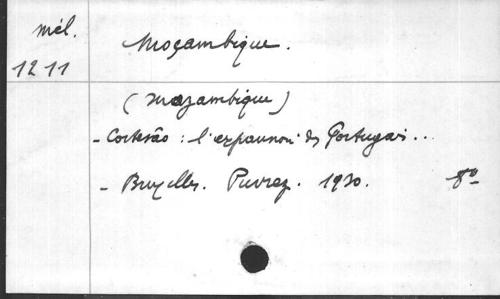 mél.
1211
Moçambique.
(Mozambique)
- Cortesão : l'expansion des Portugais...
- Bruxelles. Puvrez. 1930. 8º